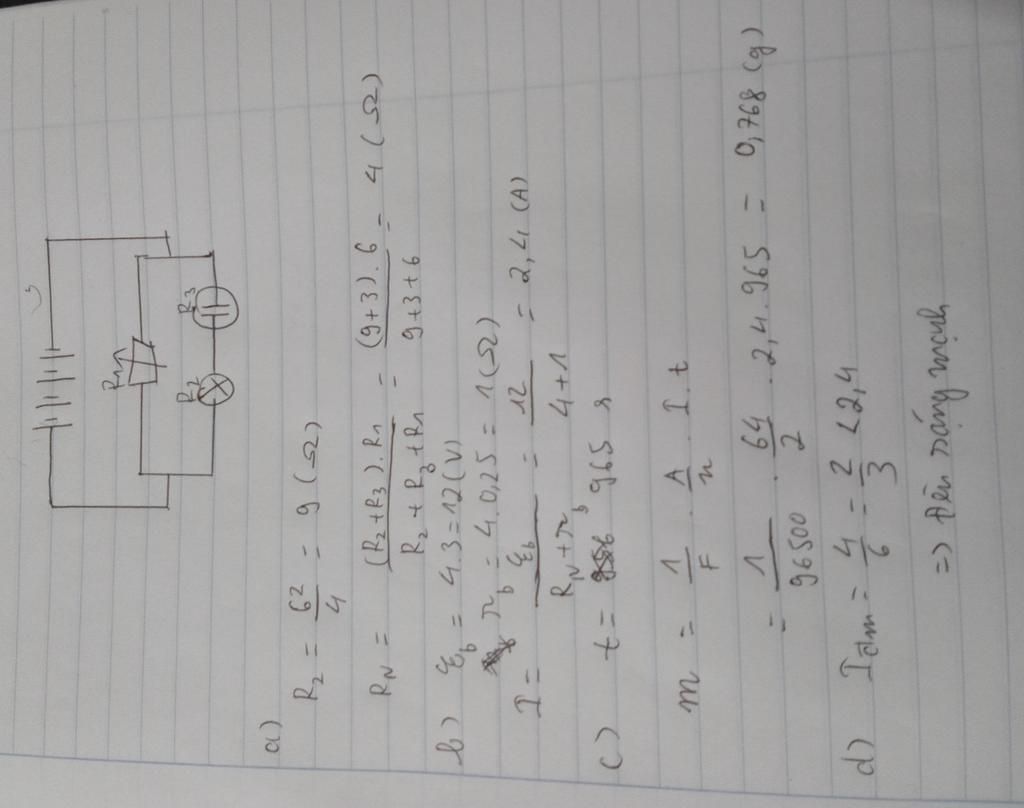 R₁
R₂ R₃
a)
R₂ = 6²/4 = 9 (Ω)
R_N = (R₂+R₃).R₁ / R₂+R₃+R₁ = (9+3).6 / 9+3+6 = 4 (Ω)
b) ℰ_b = 4.3 = 12 (V)
r_b = 4.0,25 = 1 (Ω)
I = ℰ_b / R_N+r_b = 12 / 4+1 = 2,4 (A)
c) t = 965 s
m = 1/F . A/n . I.t
= 1/96500 . 64/2 . 2,4.965 = 0,768 (g)
d) I_đm = 4/6 = 2/3 < 2,4
=> Đèn sáng mạnh